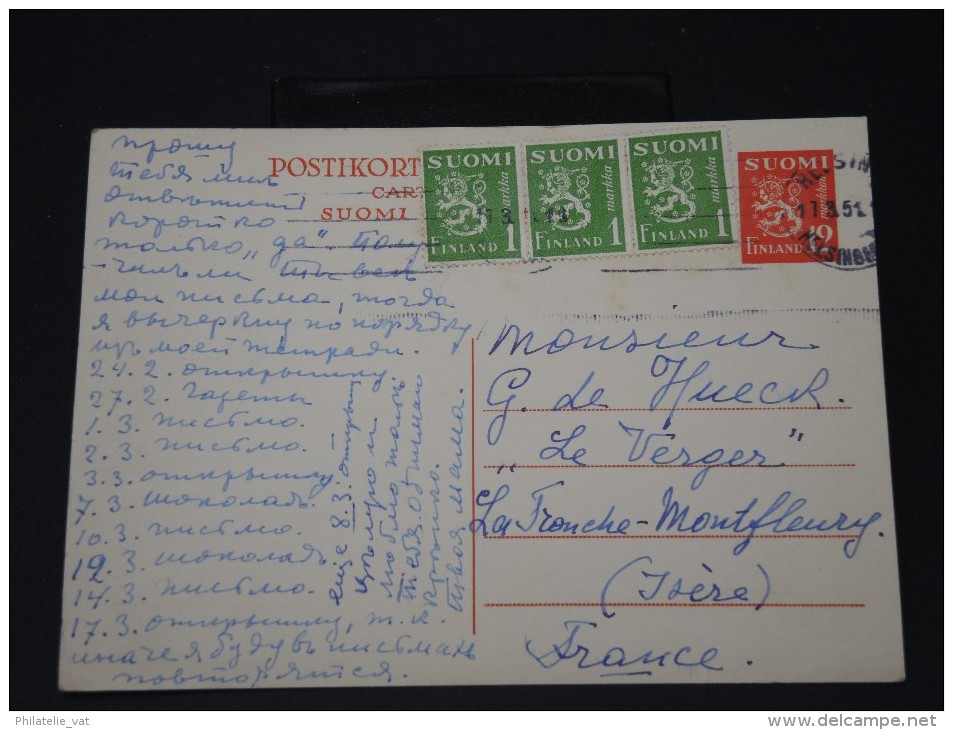 прошу
тебя мил
отвътить
коротко
только „да". Полу
-чилъ ли ты всѣ
мои письма, тогда
я вычеркну по порядку
изъ моей тетради.
24.2. открытку
27.2. газеты
1.3. письмо.
2.3. письмо.
3.3. открытку
7.3. шоколадъ.
10.3. письмо.
12.3. шоколадъ
14.3. письмо.
17.3. открытку, т.к.
иначе я буду въ письмахъ
повторятся.
еще 8.3. открытку
цѣлую и
люблю только
тебя обнимаю
крѣпко.
твоя мама.
POSTIKORT
CART
SUOMI
SUOMI
markka
FINLAND 1
SUOMI
markka
FINLAND 1
SUOMI
markka
FINLAND 1
SUOMI
FINLAND
HELSIN
17.3.51.
HELSINGF
Monsieur
G. de Hueck.
„Le Verger"
La Tronche-Montfleury.
(Isère)
France.
Philatelie_vat
www.delcampe.net